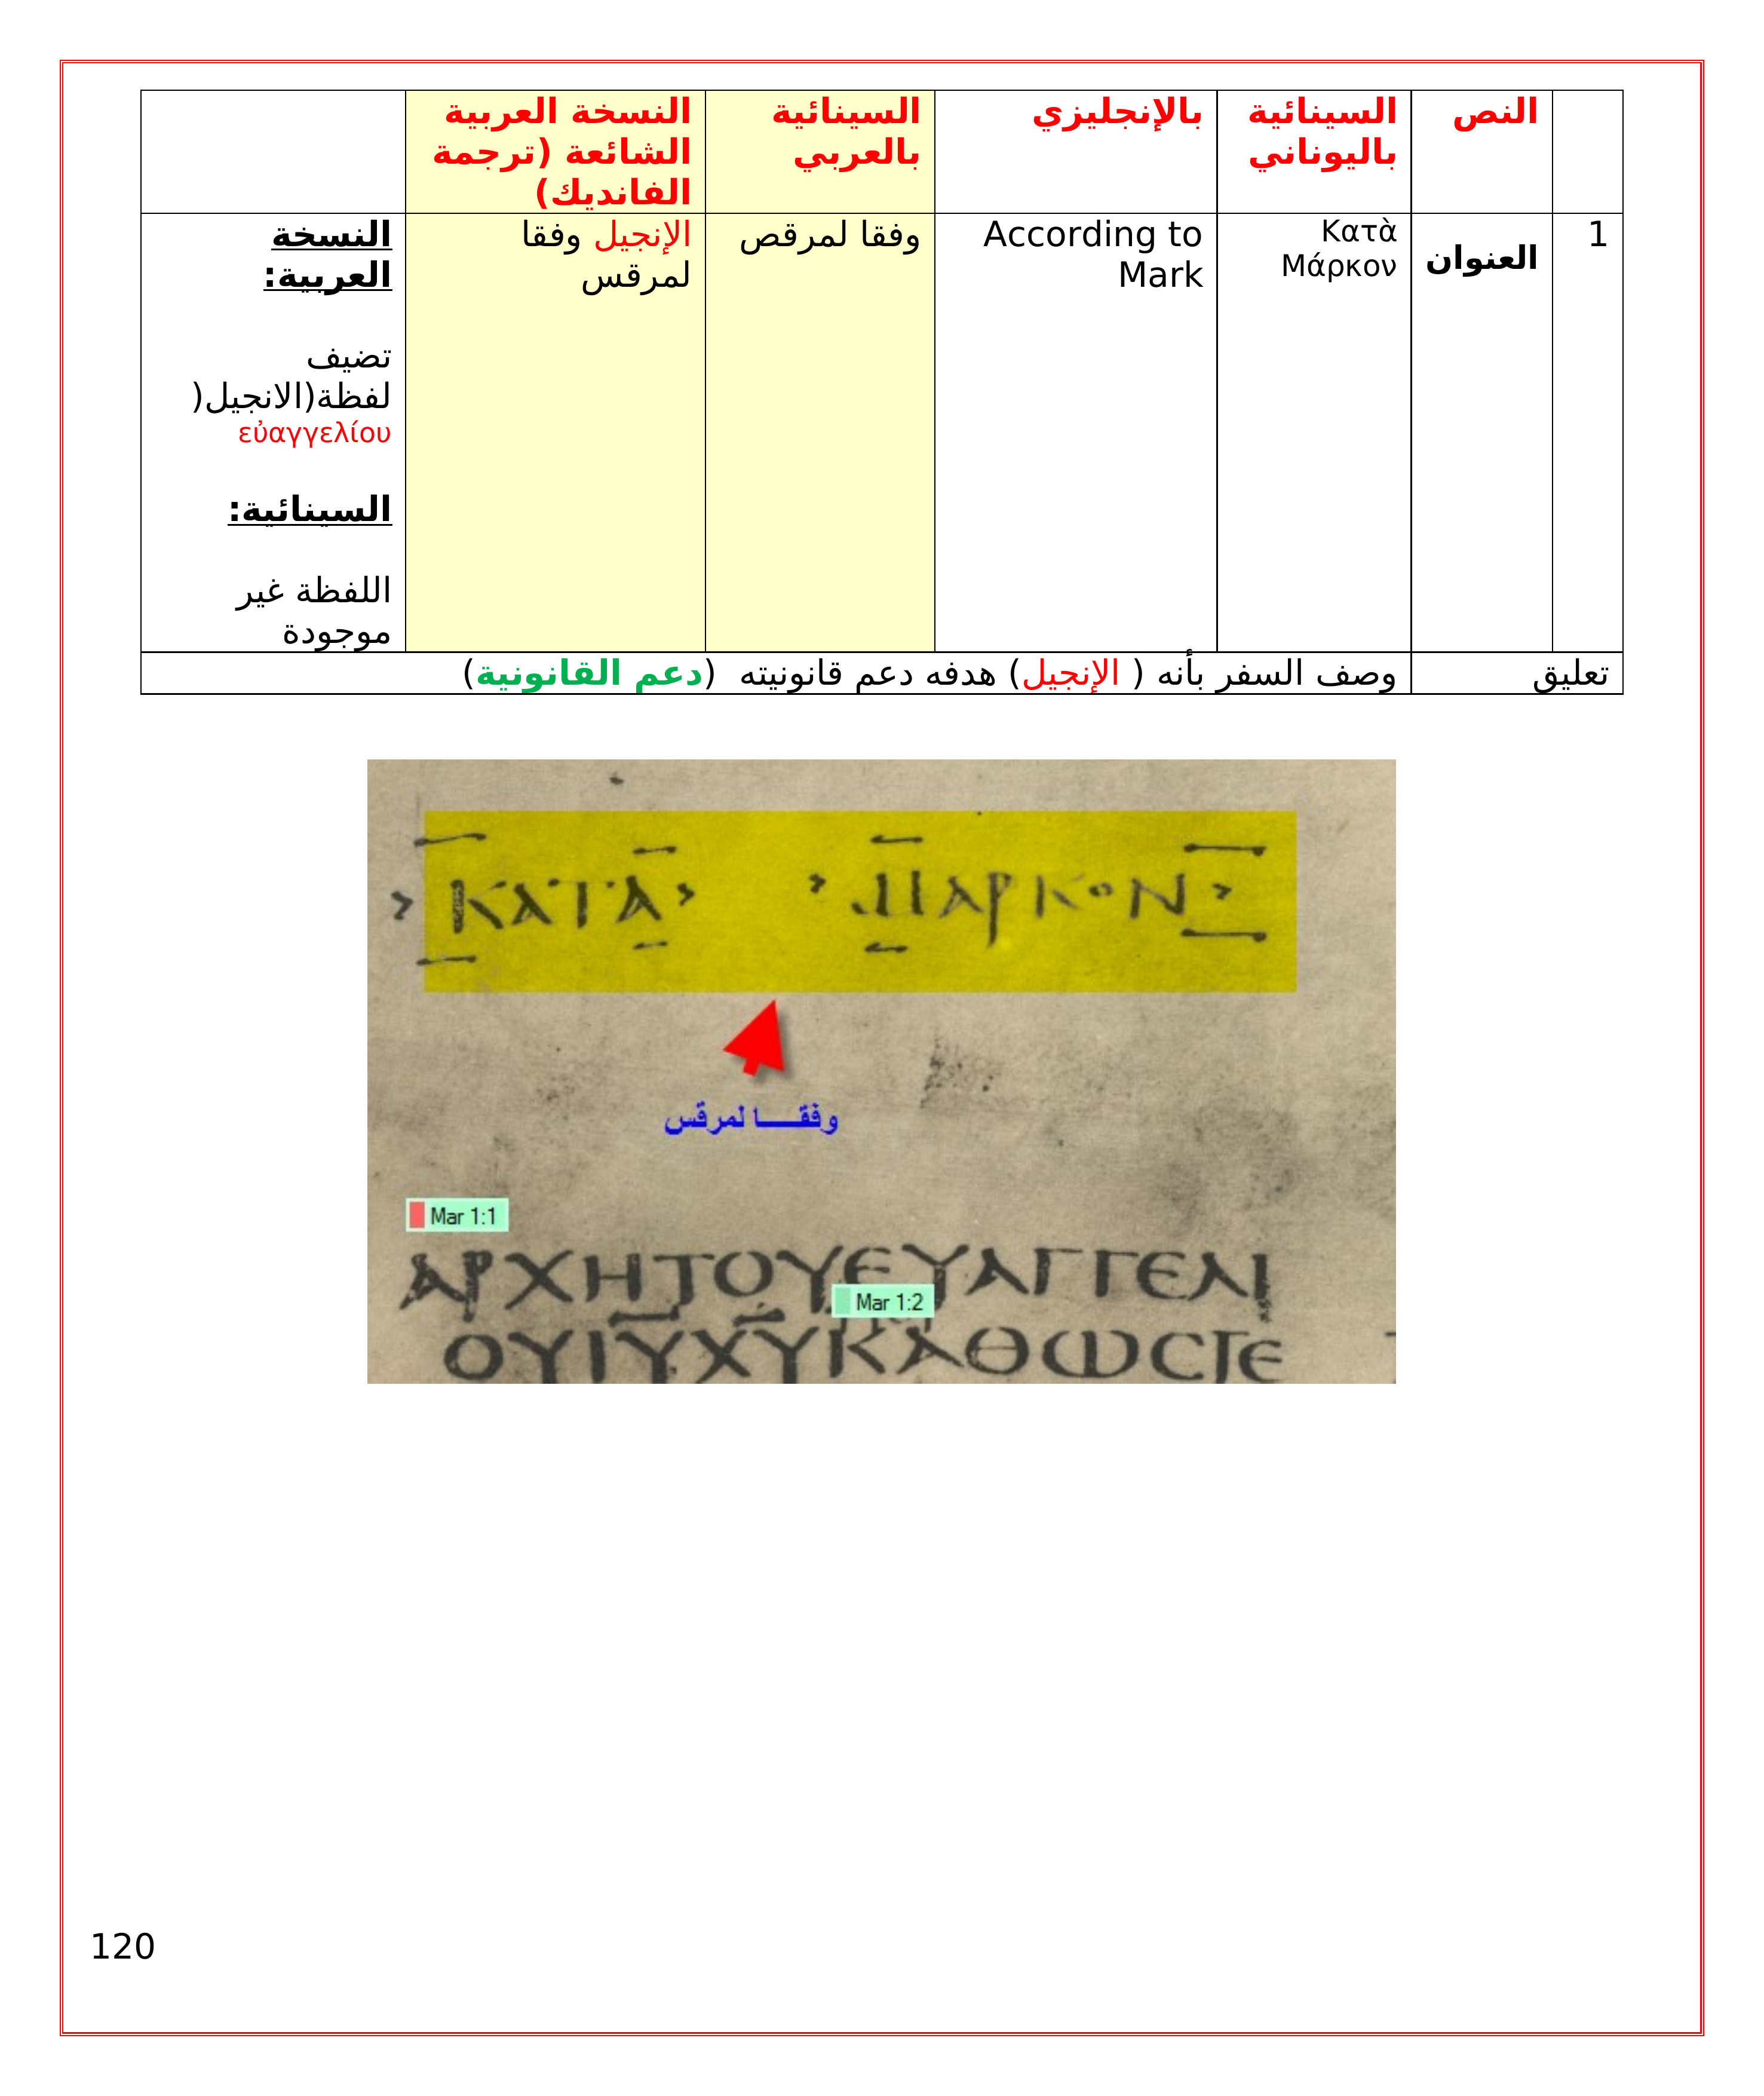 النص
السينائية
باليوناني
بالإنجليزي
السينائية
بالعربي
النسخة العربية
الشائعة (ترجمة
الفانديك)
1
العنوان
Κατὰ
Μάρκον
According to
Mark
وفقا لمرقص
الإنجيل وفقا
لمرقس
النسخة
العربية:
تضيف
لفظة(الانجيل(
εὐαγγελίου
السينائية:
اللفظة غير
موجودة
تعليق
وصف السفر بأنه ( الإنجيل) هدفه دعم قانونيته (دعم القانونية)
› ΚΑΤΑ › › ΜΑΡΚΟΝ ›
وفقــــا لمرقس
Mar 1:1
ΑΡΧΗΤΟΥΕΥΑΓΓΕΛΙ
Mar 1:2
ΟΥΙΥΧΥΚΑΘΩCΓΕ
120